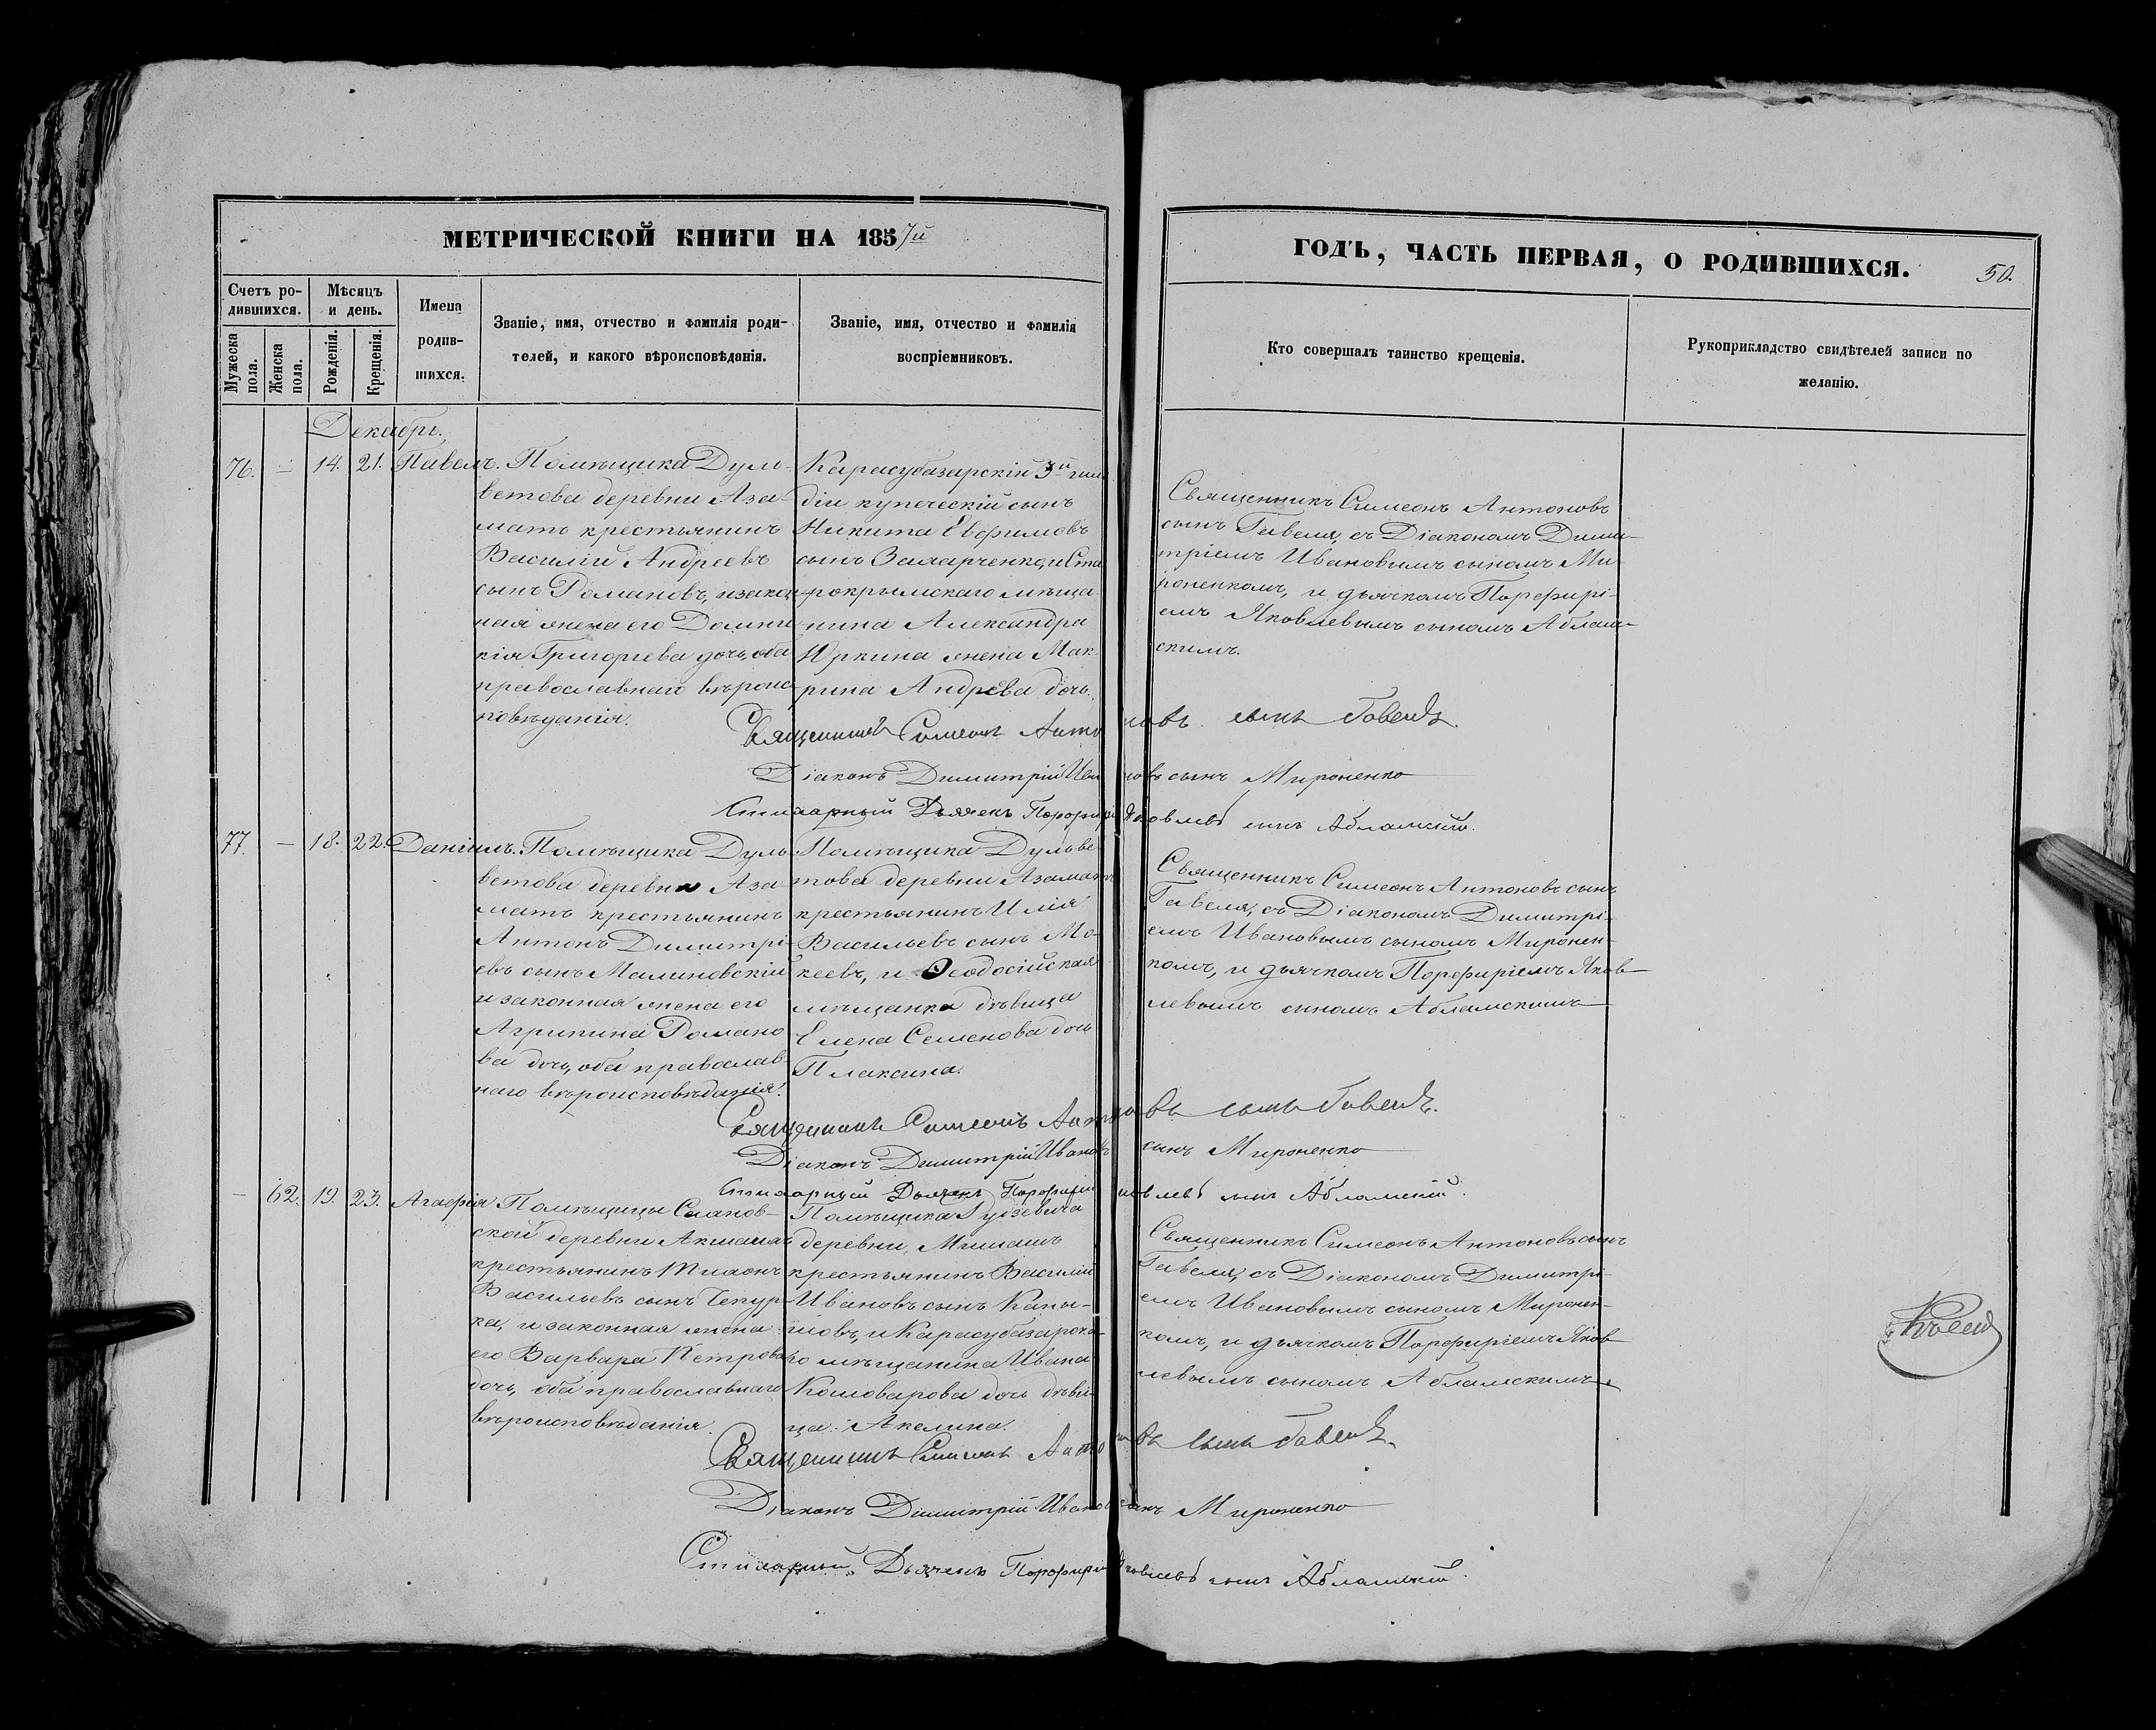 МЕТРИЧЕСКОЙ КНИГИ НА 1857й
ГОДЪ, ЧАСТЬ ПЕРВАЯ, О РОДИВШИХСЯ.
50.
Счетъ ро-
дившихся.
Мужеска
пола.
Женска
пола.
Мѣсяцъ
и день.
Рожденія.
Крещенія.
Имена
родив-
шихся.
Званіе, имя, отчество и фамилія роди-
телей, и какого вѣроисповѣданія.
Званіе, имя, отчество и фамилія
воспріемниковъ.
Кто совершалъ таинство крещенія.
Рукоприкладство свидѣтелей записи по
желанію.
Декабрь.
76. — 14. 21. Павелъ.
Помѣщика Дуль-
ветова деревни Аза-
матъ крестьянинъ
Василій Андреевъ
сынъ Романовъ, и закон-
ная жена его Домни-
кія Григорьева дочь, оба
православнаго вѣроис-
повѣданія.
Карасубазарскій 3й гиль
діи купеческій сынъ
Никита Евфимовъ
сынъ и Ста
рокрымскаго мѣща-
нина Александра
Юркина жена Мак-
рина Андрѣева дочь.
Священникъ Симеонъ Антоновъ
сынъ Гавеля, съ Діакономъ Дими-
тріемъ Ивановымъ сыномъ Ми-
роненкомъ, и дьячкомъ Порфирі-
емъ Яковлевымъ сыномъ Аблам-
скимъ.
Священникъ Симеонъ Антоновъ сынъ Гавеля.
Діаконъ Димитрій Ивановъ сынъ Мироненко
Стихарный Дьячекъ Порфирій Яковлевъ сынъ Абламскій.
77. — 18. 22. Даніилъ.
Помѣщика Дуль-
ветова деревни Аза-
матъ крестьянинъ
Антонъ Димитрі-
евъ сынъ Малиновскій
и законная жена его
Агрипина Романо
ва дочь, оба православ-
наго вѣроисповѣданія.
Помѣщика Дульве
това деревни Азаматъ
крестьянинъ Илія
Васильевъ сынъ Мо-
кеевъ, и Ѳеодосійская
мѣщанка дѣвица
Елена Семенова дочь
Плаксина.
Священникъ Симеонъ Антоновъ сынъ
Гавеля, съ Діакономъ Димитрі-
емъ Ивановымъ сыномъ Миронен-
комъ, и дьячкомъ Порфиріемъ Яков-
левымъ сыномъ Абламскимъ
Священникъ Симеонъ Антоновъ сынъ Гавеля.
Діаконъ Димитрій Ивановъ сынъ Мироненко
Стихарный Дьячекъ Порфирій Яковлевъ сынъ Абламскій.
— 62. 19. 23. Агафія
Помѣщицы
ской деревни
крестьянинъ
Васильевъ сынъ Чепур-
ка, и законная жена
его Варвара Петрова
дочь, оба православнаго
вѣроисповѣданія.
Помѣщика
деревни
крестьянинъ Василій
Ивановъ сынъ
и Карасубазарска-
го мѣщанина Ивана
Коноварова дочь дѣви-
ца Акелина.
Священникъ Симеонъ Антоновъ сынъ
Гавеля, съ Діакономъ Димитрі-
емъ Ивановымъ сыномъ Миронен-
комъ, и дьячкомъ Порфиріемъ Яков
левымъ сыномъ Абламскимъ
Священникъ Симеонъ Антоновъ сынъ Гавеля.
Діаконъ Димитрій Ивановъ сынъ Мироненко
Стихарный Дьячекъ Порфирій Яковлевъ сынъ Абламскій.